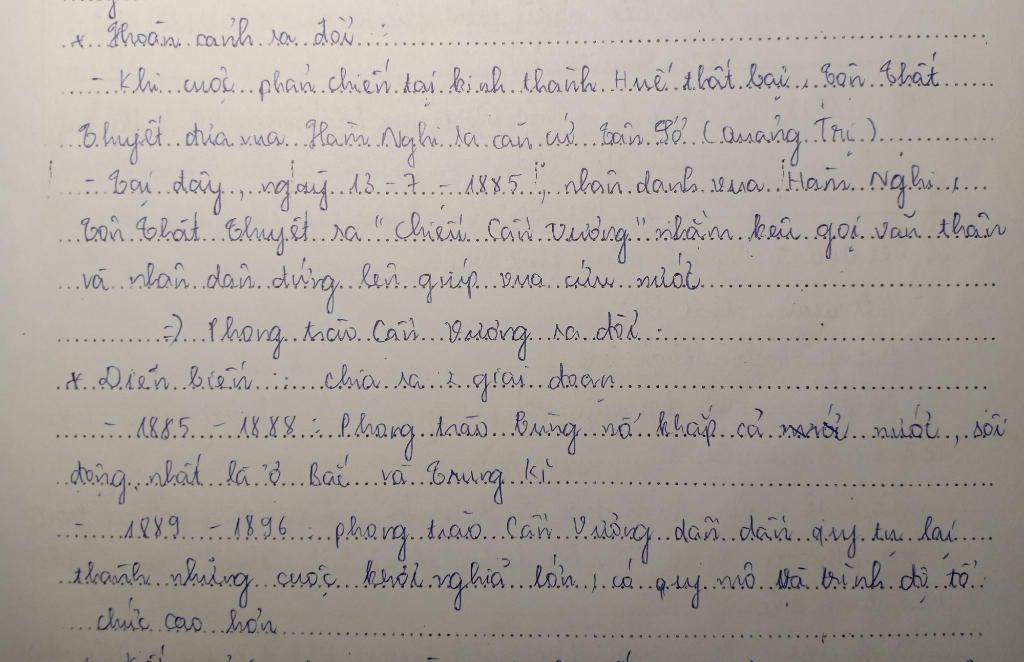 * Hoàn cảnh ra đời :
- Khi cuộc phản chiến tại kinh thành Huế thất bại, Tôn Thất
Thuyết đưa vua Hàm Nghi ra căn cứ Tân Sở (Quảng Trị)
- Tại đây, ngày 13 - 7 - 1885, nhân danh vua Hàm Nghi,
Tôn Thất Thuyết ra "Chiếu Cần Vương" nhằm kêu gọi văn thân
và nhân dân đứng lên giúp vua cứu nước
=) Phong trào Cần Vương ra đời.
* Diễn biến : chia ra 2 giai đoạn
- 1885 - 1888 : Phong trào bùng nổ khắp cả nước, sôi
động nhất là ở Bắc và Trung Kì
- 1889 - 1896 : phong trào Cần Vương dần dần quy tụ lại
thành những cuộc khởi nghĩa lớn, có quy mô và trình độ tổ
chức cao hơn